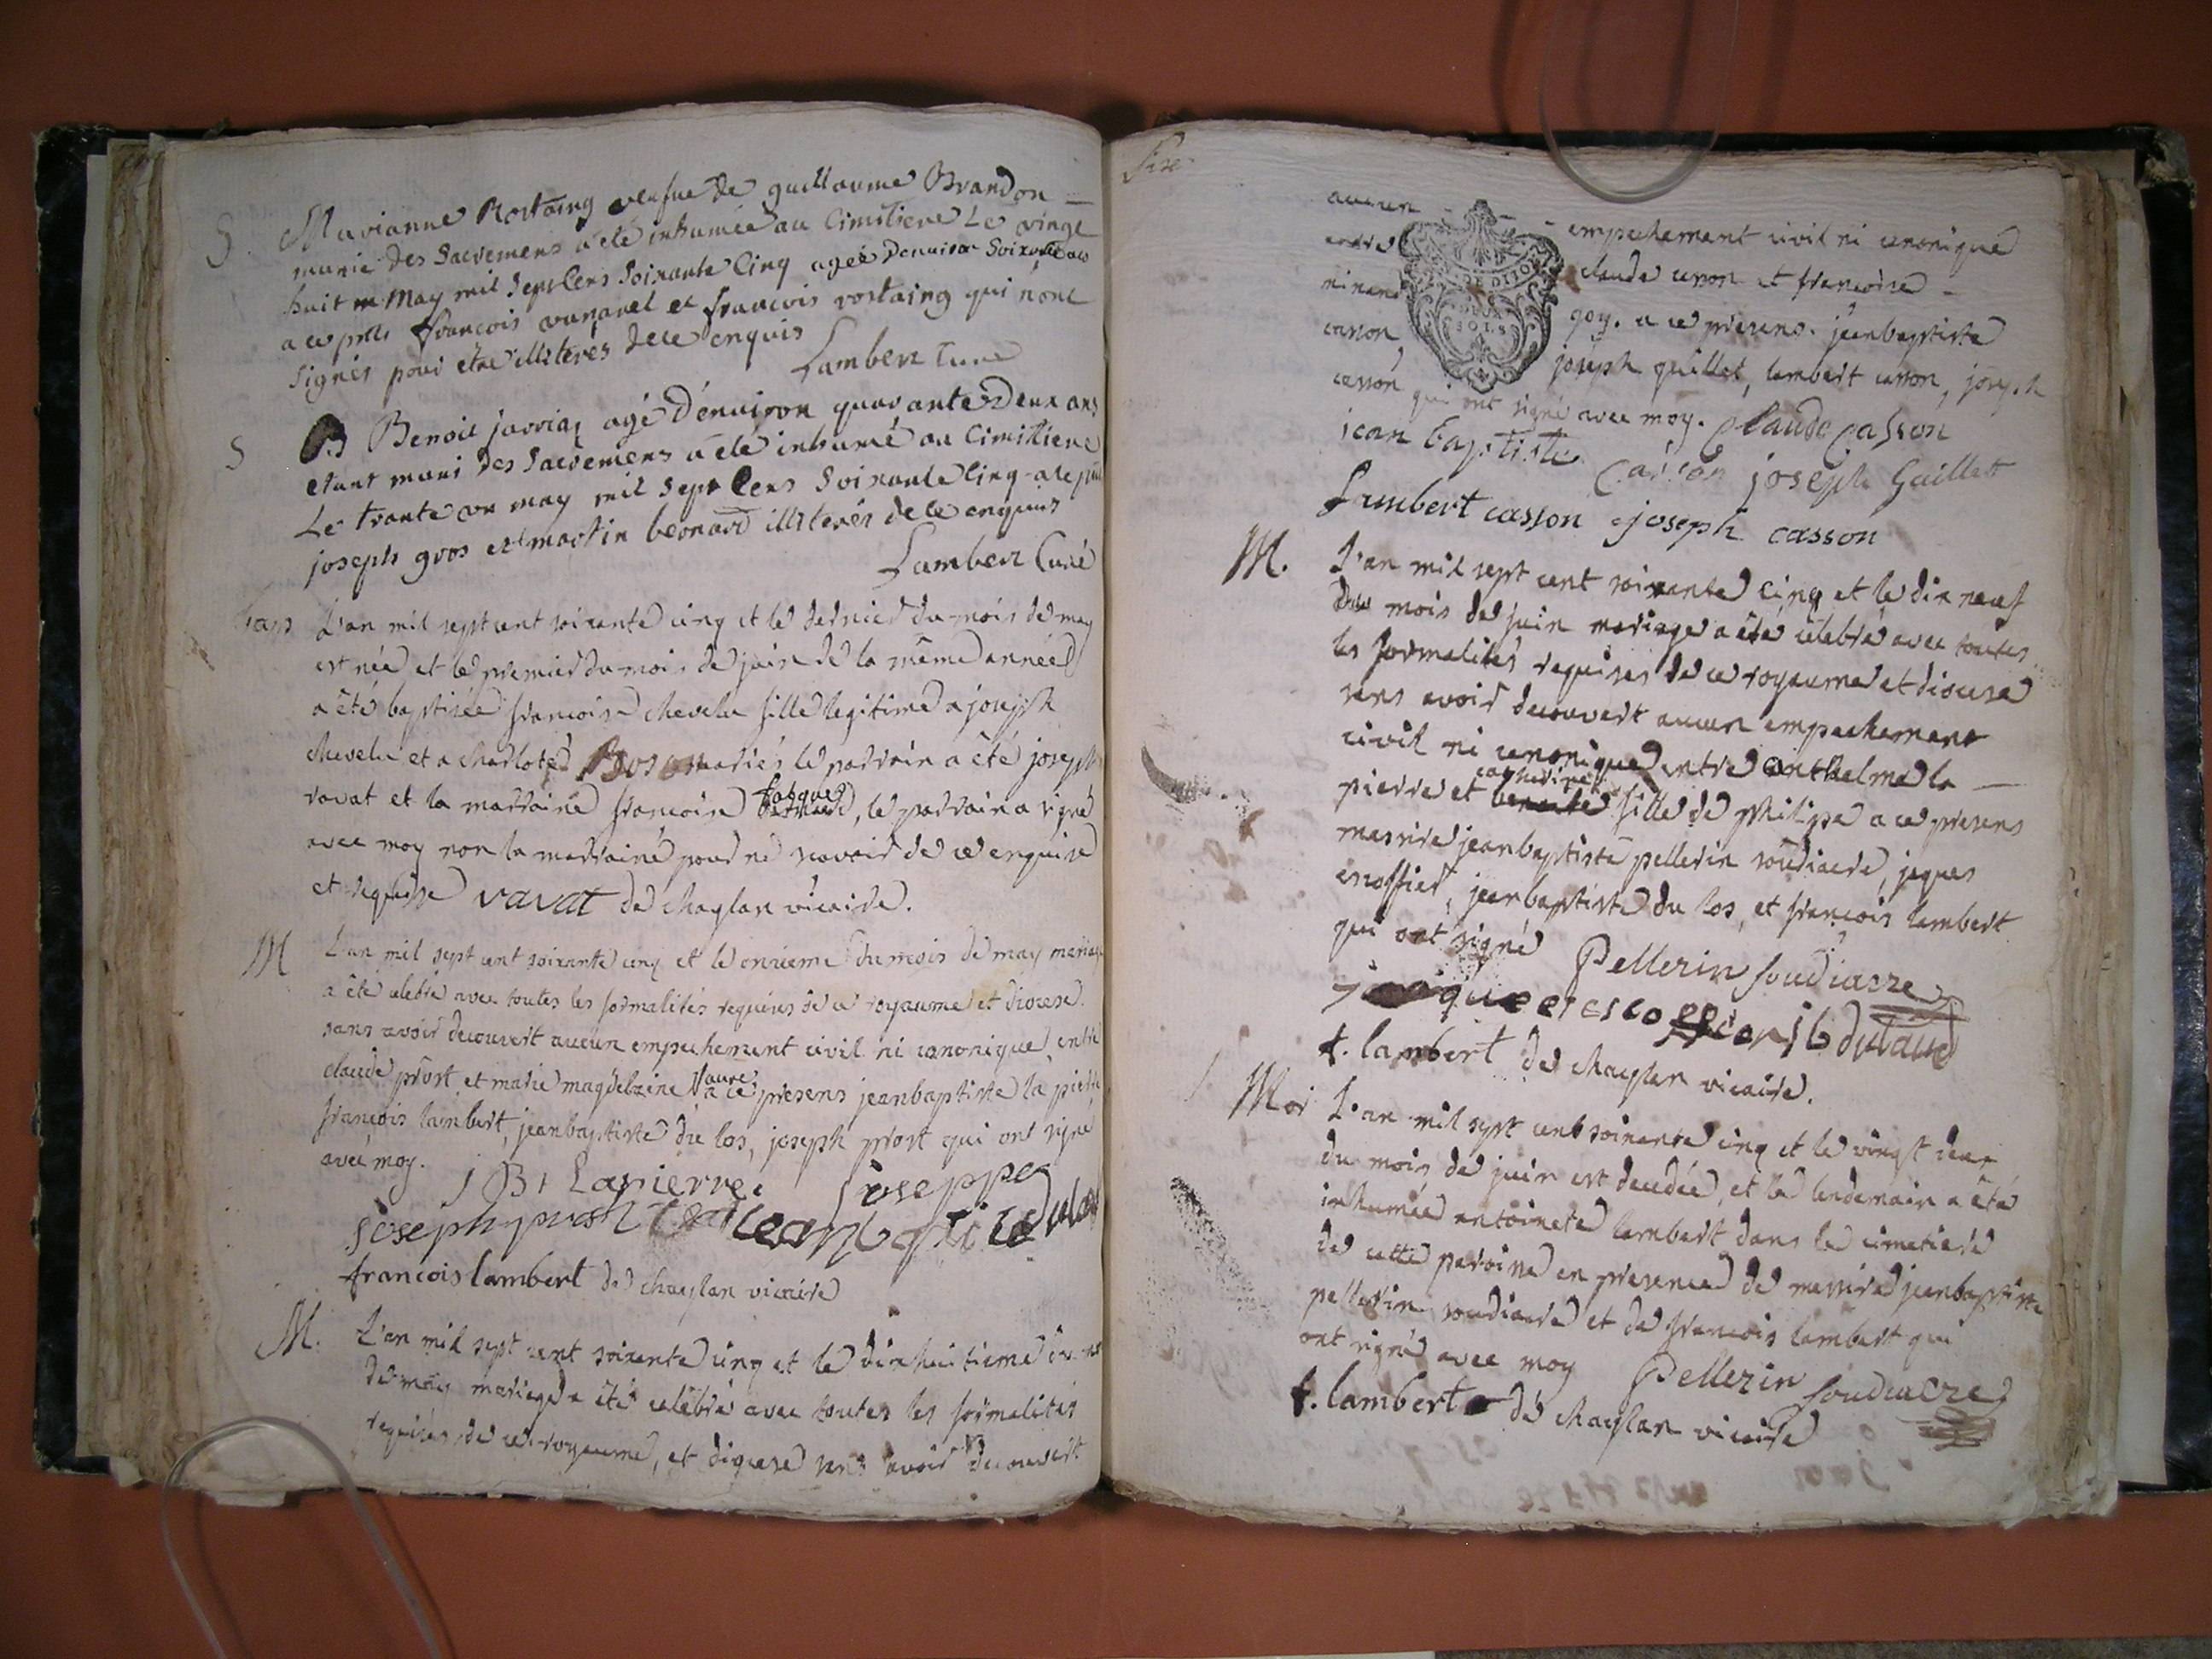 S Marianne Rostaing veufue de guillaume Brandon
munie des Sacremens a été inhumée au Cimitiere Le vingt
huit may mil Sept Cens Soixante Cinq agée denuiron Soixante ans
a ce pnts francois et francois rostaing qui nont
Signés pour etre illiterés de ce enquis
Lambert Curé
S B Benoit javriaz agé d'enuiron quarante Deux ans
etant muni des Sacremens a été inhumé au Cimitiere
Le trante un may mil Sept Cens Soixante Cinq
joseph gros et martin bernard illiterés de ce enquis
Lambert Curé
bap L'an mil sept cent soixante cinq et le dernier du mois de may
est née et le premier du mois de juin de la même année
a été baptisée francoise chevelu fille legitime a joseph
chevelu et a charlote Boson mariés le parrain a été joseph
ravat et la marraine francoise, le parrain a signé
avec moy non la marraine pour ne scavoir de ce enquise
et requise ravat de chaylan vicaire.
M L'an mil sept cent soixante cinq et le onzieme du mois de may mariage
a été celebré avec toutes les formalités requises de ce royaume et diocese.
sans avoir decouvert aucun empechement civil ni canonique entre
claude prost et marie magdelaine Vaure a ce presens jeanbaptiste la pierre
francois lambert, jeanbaptiste du los, joseph prost qui ont signé
avec moy.
J B Lapierre
joseph prost
francois lambert de chaylan vicaire
M. L'an mil sept cent soixante cinq et le dixhuitieme
de may mariage a été celebré avec toutes les formalités
requises de ce royaume, et diocese sans avoir decouvert
aucun empechement civil ni canonique
entre claude casson et francoise
goy. a ce presens. jeanbaptiste
DE DIJON
DEUX
SOLS
casson, joseph guillet, lambert casson, joseph
casson qui ont signé avec moy. Claude Casson
jean baptiste Casson joseph Guillet
Lambert casson joseph casson
M. L'an mil sept cent soixante Cinq et le dix neuf
du mois de juin mariage a été célebré avec toutes
les formalités requises de ce royaume et diocese
sans avoir decouvert aucun empechement
civil ni canonique entre anthelme la
catherine
pierre et fille de philipe a ce presens
messire jeanbaptiste pellerin soudiacre, jaques
escoffier, jeanbaptiste du los, et francois lambert
qui ont signé Pellerin soudiacre
f. lambert de chaylan vicaire.
Mor L'an mil sept cent soixante cinq et le vingt deux
du mois de juin est decedée, et le lendemain a été
inhumée antoinete lambert dans le cimetiere
de cette paroisse en presence de messire jeanbaptiste
pellerin soudiacre et de francois lambert qui
ont signé avec moy Pellerin soudiacre
f. lambert de chaylan vicaire